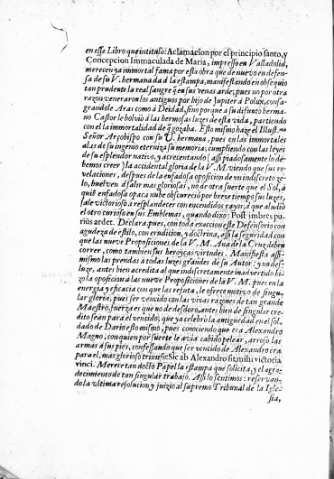 en esse Libro que intitulò: Aclamacion por el principio santo, y
Concepcion Inmaculada de Maria, impresso en Valladolid,
mereceu ya inmortal fama por esta obra que de nuevo en defen-
sa de su V. hermana da à la estampa, manifestando en obsequio
tan prudente la real sangre q̃ en sus venas arde; pues no por otra
razon veneraron los antiguos por hijo de Jupiter à Polux, consa-
grandole Aras como à Deidad, sino porque a su difunto herma-
no Castor le bolviò à las hermosas luzes de esta vida, partiendo
con el la inmortalidad de q̃ gozaba. Esto mismo haze el Illust.mo
Señor Arçobispo con su V. hermana, pues en las inmortales
de su ingenio eterniza su memoria, cumpliendo con las leyes
de su esplendor nativo, y acrecentando (assi piadosamente lo de-
bemos creer) la accidental gloria de la V. M. viendo que sus re-
velaciones, despues de la enfadosa oposicion de un indiscreto ze-
lo, buelven à salir mas gloriosas, no de otra suerte que el Sol, à
quien enfadosa opaca nube obscureciò por breve tiempo sus luzes,
sale victorioso à resplandecer con encendidos rayos, à que aludiò
el otro curioso en sus Emblemas, quando dixo: Post imbres pu-
riùs ardet. Declara, pues, con toda execucion este Defensorio con
agudeza de estilo, con erudicion, y doctrina, essa la seguridad con
que las nueve Proposiciones de la V. M. Ana de la Cruz deben
correr, como tambien sus heroycas virtudes. Manifiesta assi-
mismo las prendas à todas luzes grandes de su Autor: y no des-
luze, antes bien acredita al que indiscretamente inadvertido hi-
zo la oposicion à las nueve Proposiciones de la V. M. pues en la
energia y eficacia con que las refuta, le ofrece motivo de singu-
lar gloria, pues ser vencido con las vivas razones de tan grande
Maestro, fuerça es que no de desdoro, antes bien de singular cre-
dito sean para el vencido, que ya celebrò la antiguedad en el sol-
dado de Dario esto mismo, pues conociendo que era Alexandro
Magno, con quien por suerte le avia cabido pelear, arrojò las
armas à sus pies, confessando que ser vencido de Alexandro era
para el, mas glorioso triunfo: Sic ab Alexandro fit milli victoria
vinci. Merece tan docto Papel la estampa que solicita, y el agra-
decimiento de tan singular trabajo. Assi lo sentimos: reservan-
do la ultima resolucion, y juizio al supremo Tribunal de la Igle-
sia,